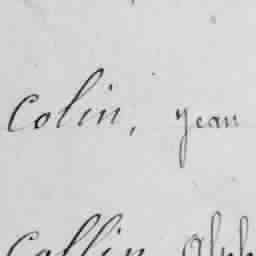 Colin, Jean
Collin Alph